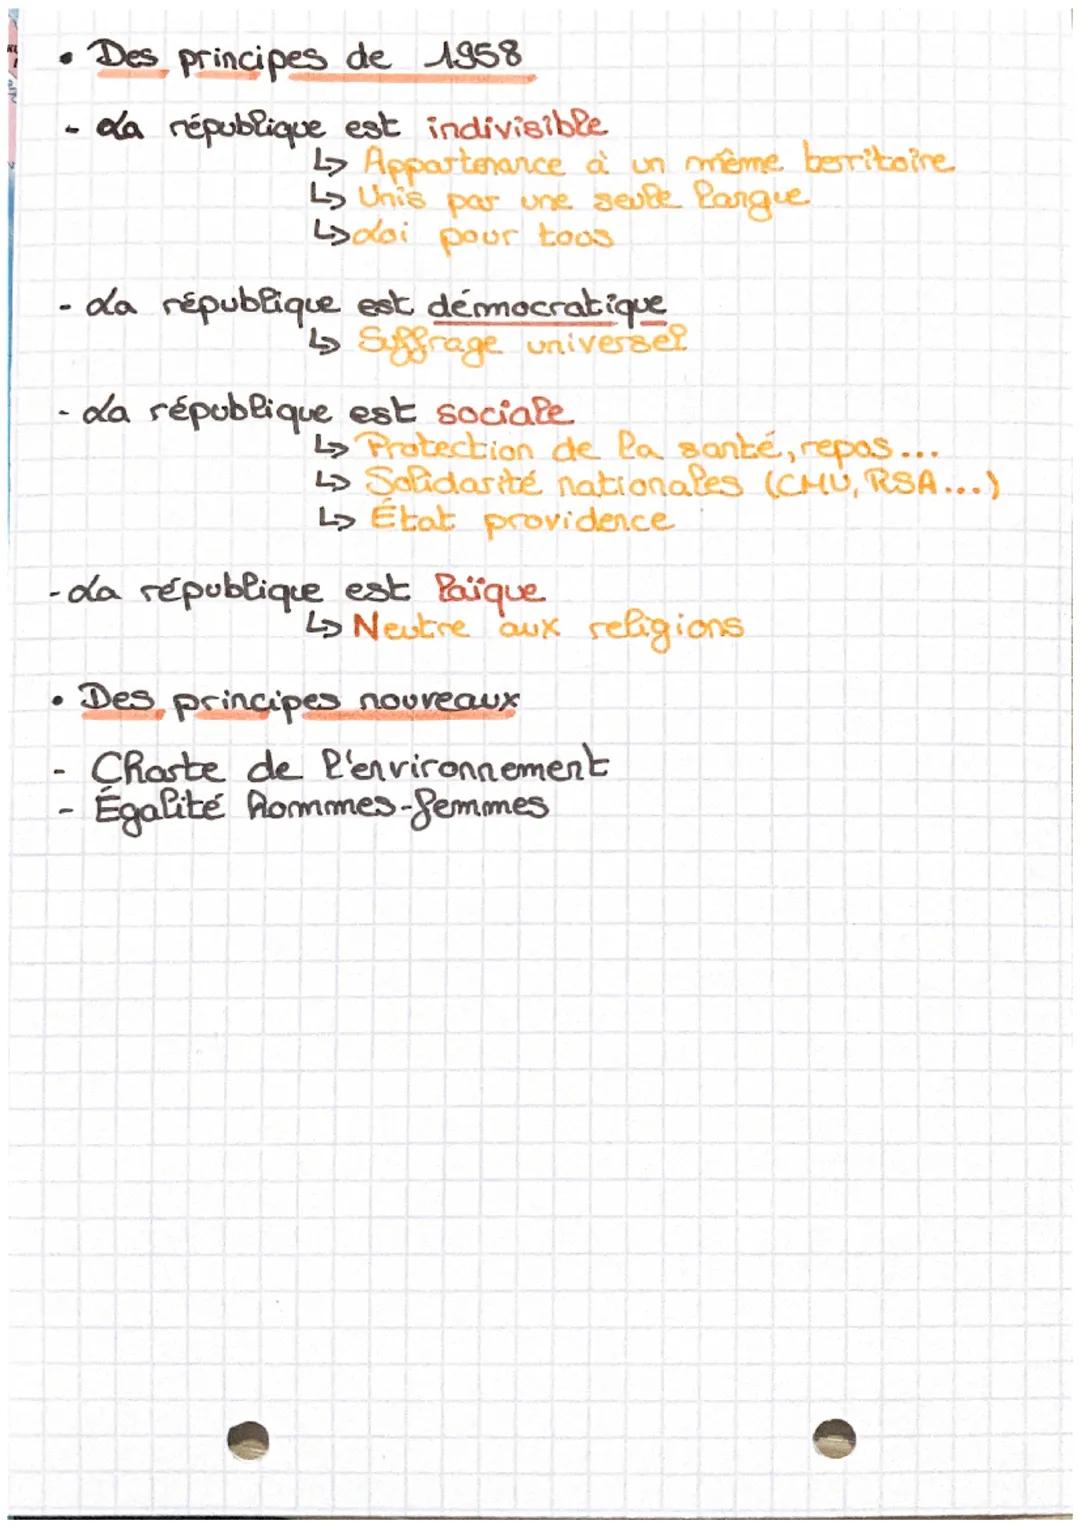 • Des principes de 1958
- La république est indivisible
↳ Appartenance à un même territoire
↳ Unis par une seule langue
↳ Loi pour tous
- La république est démocratique
↳ Suffrage universel
- La république est sociale
↳ Protection de la santé, repos...
↳ Solidarité nationales (CMU, RSA...)
↳ État providence
- La république est laïque
↳ Neutre aux religions
• Des principes nouveaux
- Charte de l'environnement
- Égalité hommes-femmes